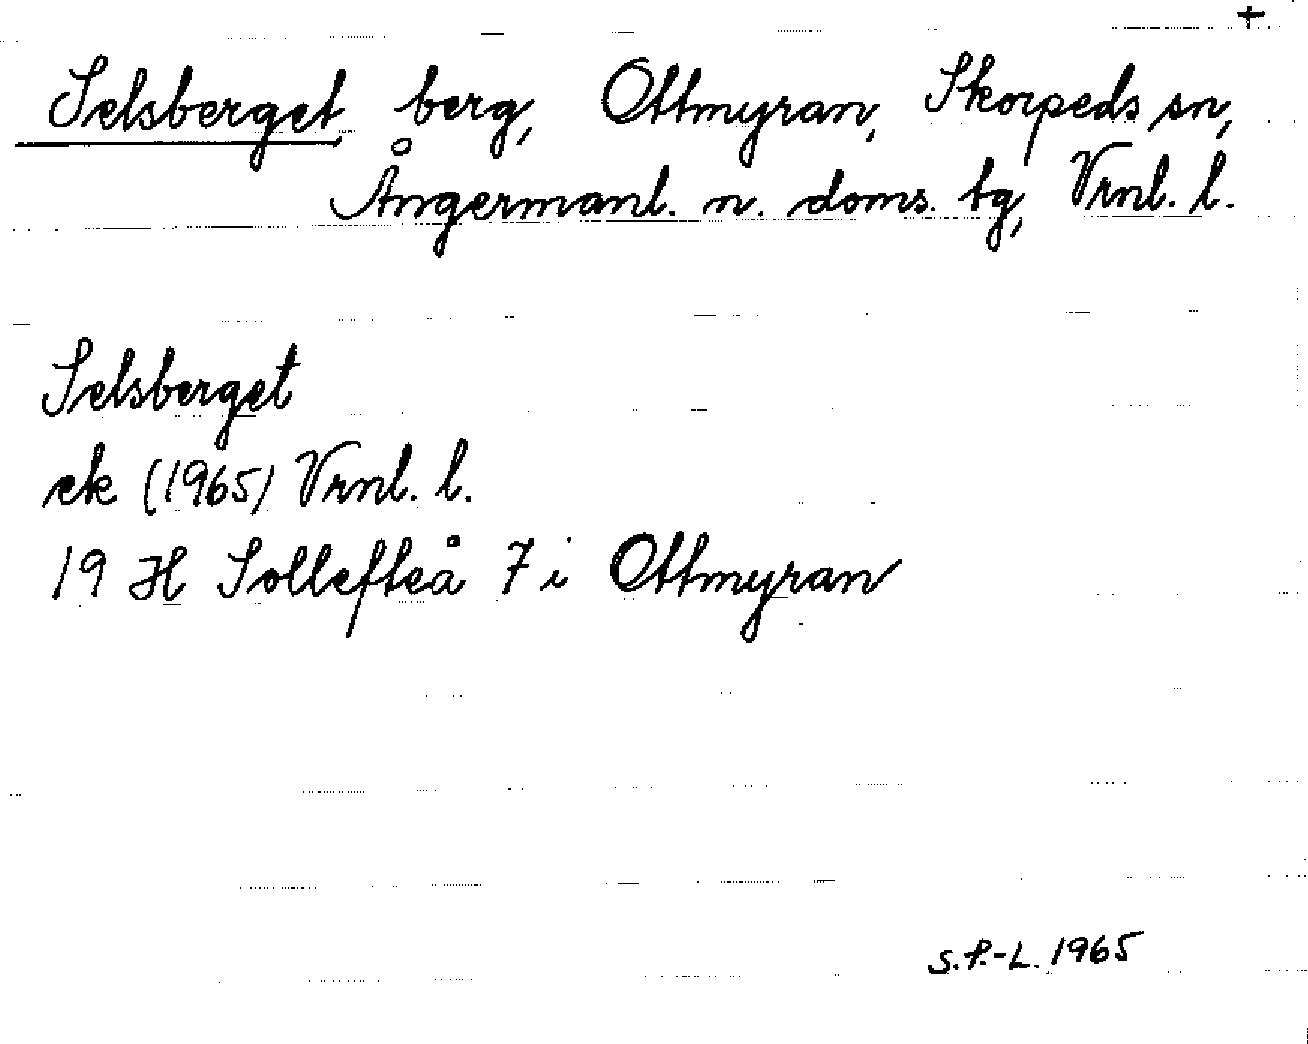 +
Selsberget berg, Ottmyran, Skorpeds sn,
Ångermanl. n. doms. tg, Vrnl. l.
Selsberget
ek (1965) Vrnl. l.
19 H Sollefteå 7 i Ottmyran
S.P.-L. 1965